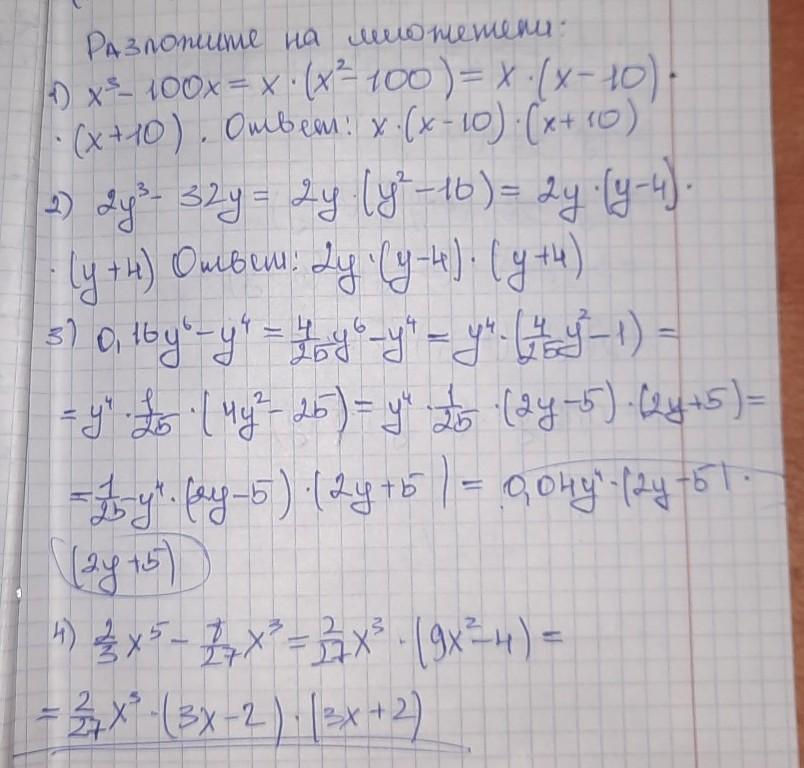 Разложите на множетели:
1) x³ - 100x = x · (x² - 100) = x · (x - 10) ·
· (x + 10) . Ответ: x · (x - 10) · (x + 10)
2) 2y³ - 32y = 2y · (y² - 16) = 2y · (y - 4) ·
· (y + 4) Ответ: 2y · (y - 4) · (y + 4)
3) 0,16y⁶ - y⁴ = 4/25 y⁶ - y⁴ = y⁴ · (4/25 y² - 1) =
= y⁴ · 1/25 · (4y² - 25) = y⁴ · 1/25 · (2y - 5) · (2y + 5) =
= 1/25 y⁴ · (2y - 5) · (2y + 5) = 0,04y⁴ · (2y - 5) ·
(2y + 5)
4) 2/3 x⁵ - 8/27 x³ = 2/27 x³ · (9x² - 4) =
= 2/27 x³ · (3x - 2) · (3x + 2)